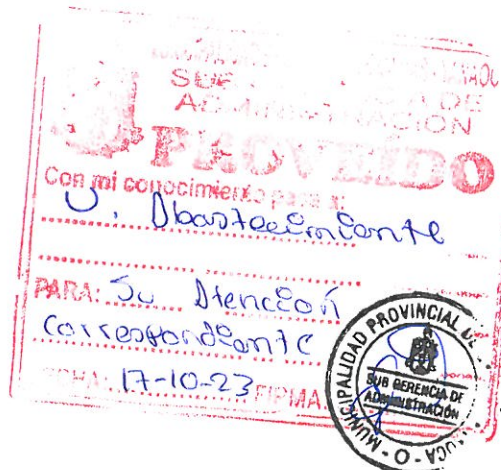 SUB
DE
ADMINISTRACION
PROVEIDO
Con mi conocimiento pase a:
U. Abastecimiento
PARA: Su Atención
Correspondiente
FECHA: 17-10-23 FIRMA
MUNICIPALIDAD PROVINCIAL DE
SUB GERENCIA DE
ADMINISTRACIÓN